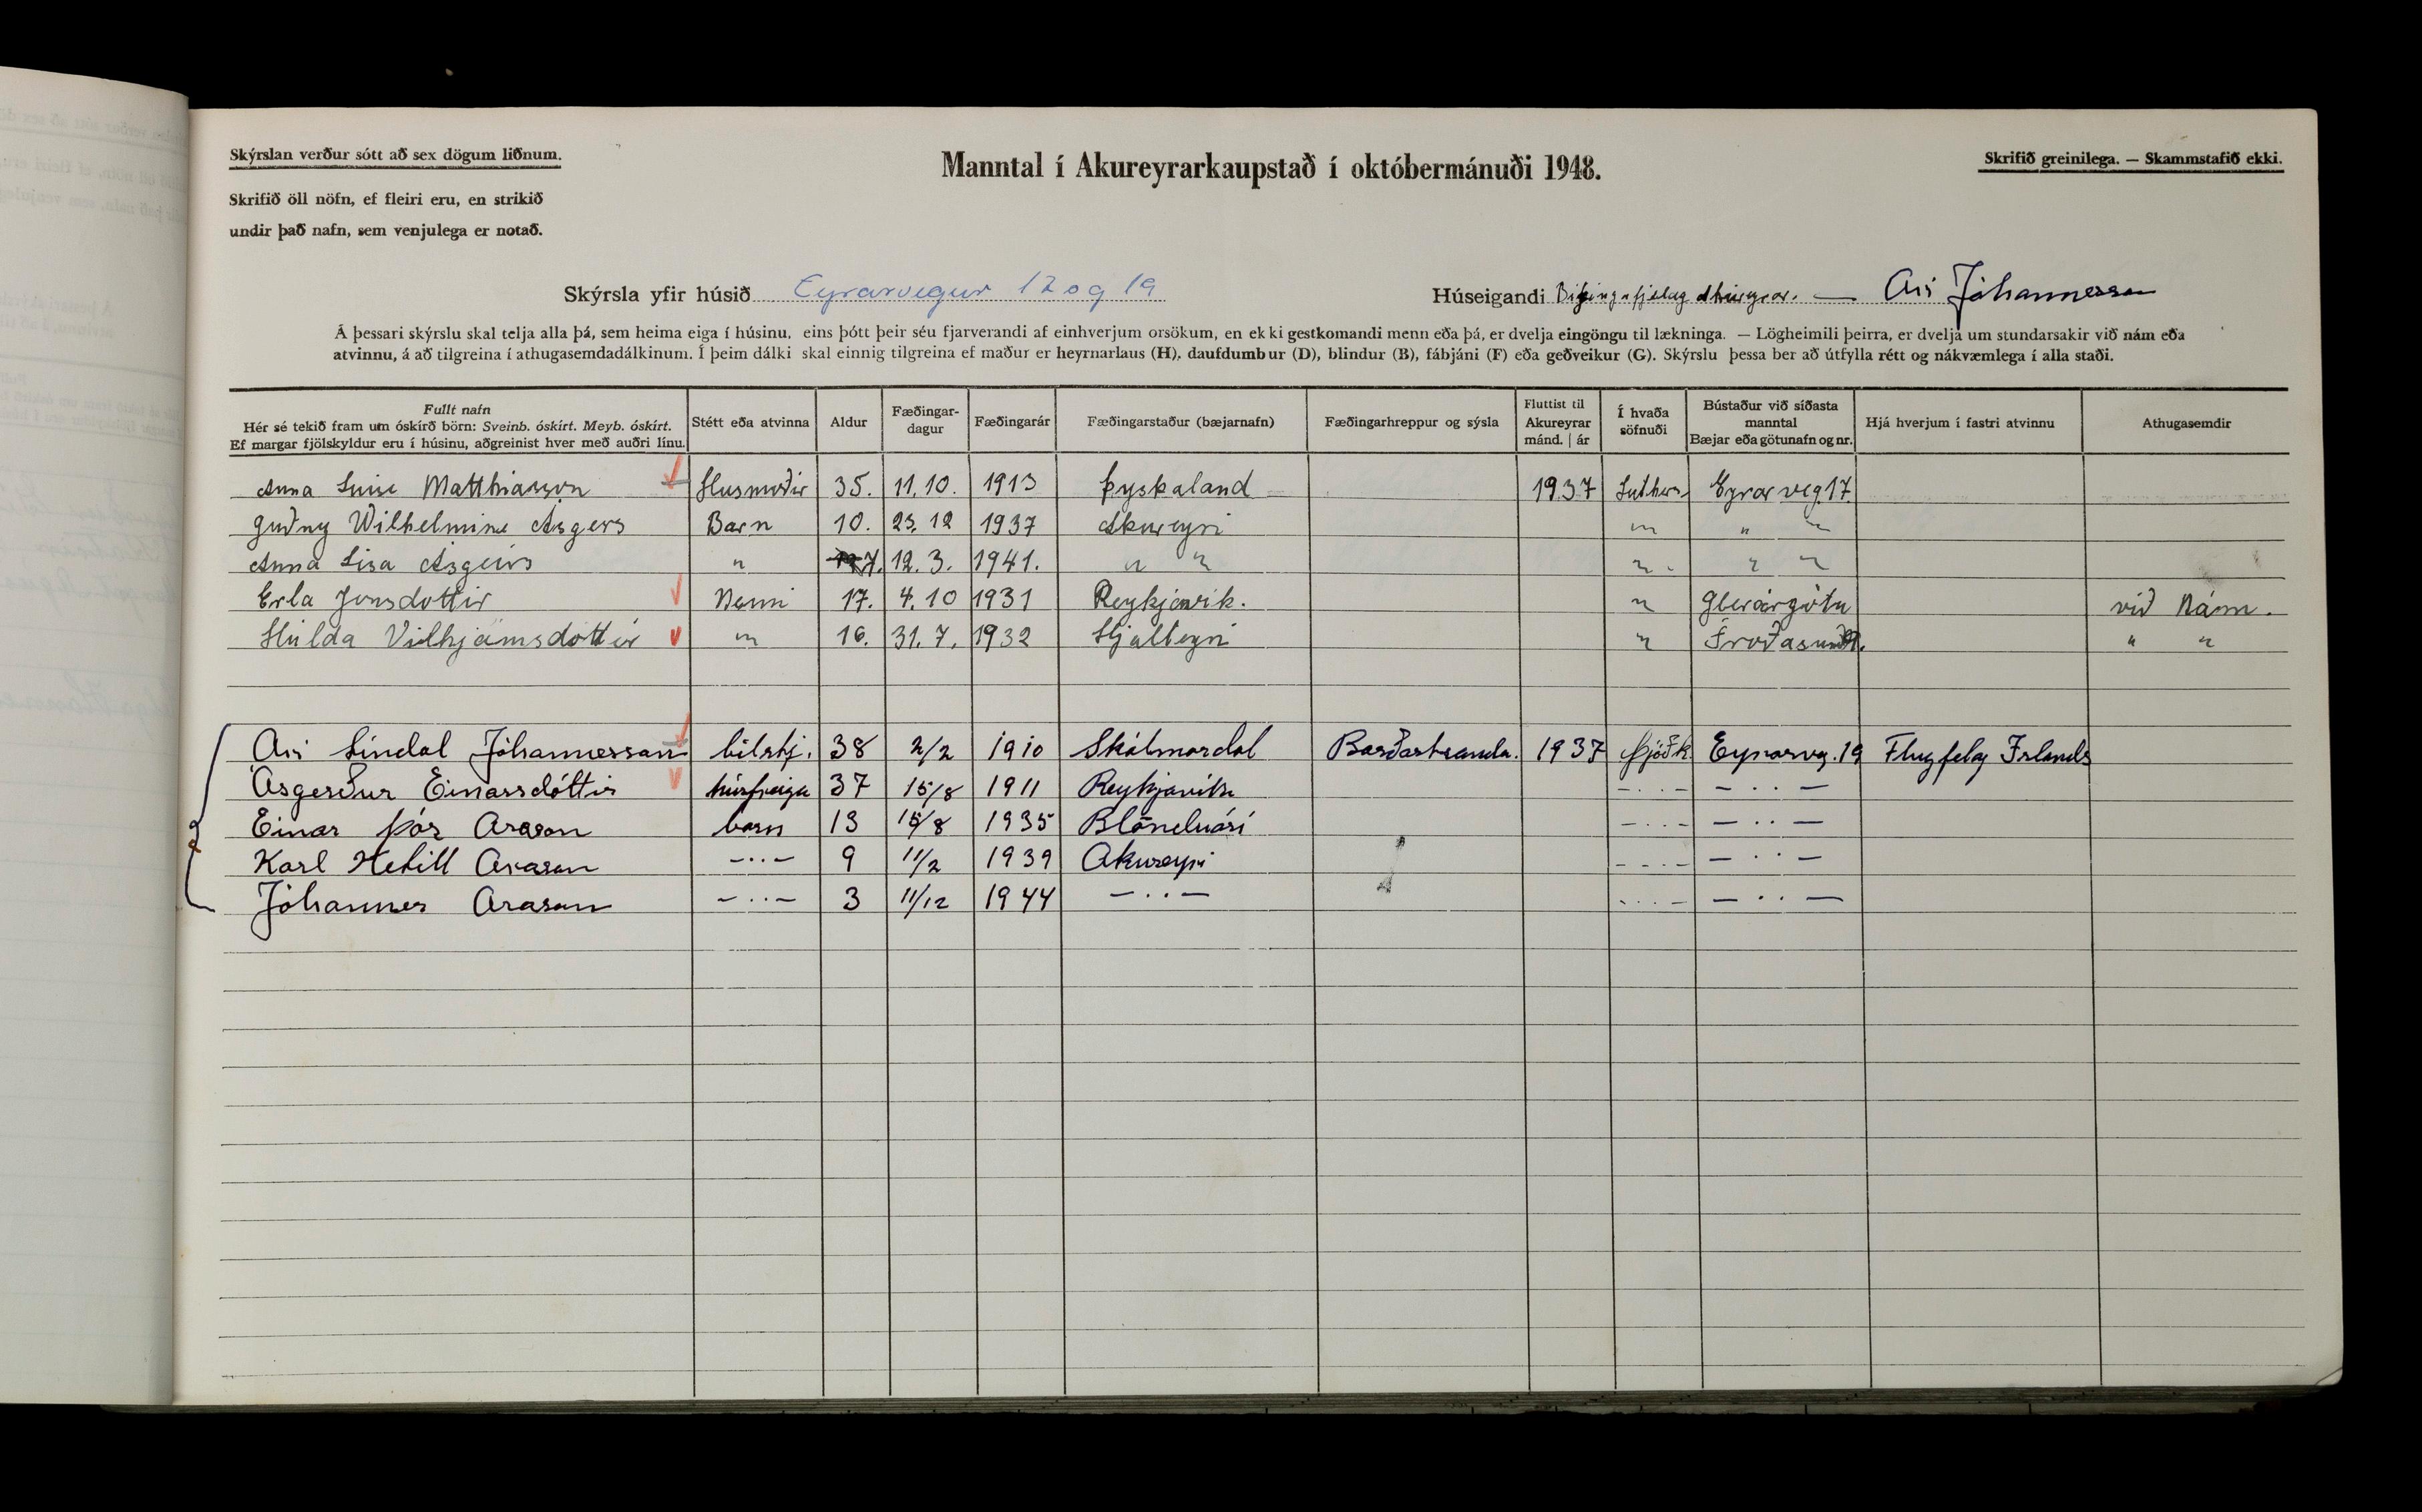 Skýrslan verður sótt að sex dögum liðnum.
Manntal í Akureyrarkaupstað í októbermánuði 1948.
Skrifið greinilega. — Skammstafið ekki.
Skrifið öll nöfn, ef fleiri eru, en strikið
undir það nafn, sem venjulega er notað.
Skýrsla yfir húsið Eyrarvegur 17 og 19
Húseigandi — Ari Jóhannesson
Á þessari skýrslu skal telja alla þá, sem heima eiga í húsinu, eins þótt þeir séu fjarverandi af einhverjum orsökum, en ekki gestkomandi menn eða þá, er dvelja eingöngu til lækninga. — Lögheimili þeirra, er dvelja um stundarsakir við nám eða
atvinnu, á að tilgreina í athugasemdadálkinum. Í þeim dálki skal einnig tilgreina ef maður er heyrnarlaus (H), daufdumbur (D), blindur (B), fábjáni (F) eða geðveikur (G). Skýrslu þessa ber að útfylla rétt og nákvæmlega í alla staði.
Fullt nafn
Hér sé tekið fram um óskírð börn: Sveinb. óskírt. Meyb. óskírt.
Ef margar fjölskyldur eru í húsinu, aðgreinist hver með auðri línu.
Stétt eða atvinna
Aldur
Fæðingar-
dagur
Fæðingarár
Fæðingarstaður (bæjarnafn)
Fæðingarhreppur og sýsla
Fluttist til
Akureyrar
mánd. | ár
Í hvaða
söfnuði
Bústaður við síðasta
manntal
Bæjar eða götunafn og nr.
Hjá hverjum í fastri atvinnu
Athugasemdir
Anna Luise Matthiasson Husmoðir 35. 11.10. 1913 Þyskaland 1937 Luthers Eyrarveg 17.
Guðny Wilhelmine Asgers Barn 10. 23. 12 1937 Akureyri " " "
Anna Lisa Asgeirs " 7. 12. 3. 1941. " " " " "
Erla Jonsdottir Nemi 17. 4. 10 1931 Reykjavik. " Glerárgötu við Nám.
Hulda Vilhjámsdóttir " 16. 31. 7. 1932 Hjalteyri " " "
Ari Líndal Jóhannesson bílstj. 38 2/2 1910 Skálmardal Barðastranda. 1937 Þjóðk. Eyrarveg. 19 Flugfelag Islands
Ásgerður Einarsdóttir húsfreyja 37 15/8 1911 Reykjavík — · · — — · · —
Einar Þór Arason barn 13 15/8 1935 Blönduósi — · · — — · · —
Karl Ketill Arason — · · — 9 11/2 1939 Akureyri — · · — — · · —
Jóhannes Arason — · · — 3 11/12 1944 — · · — — · · — — · · —